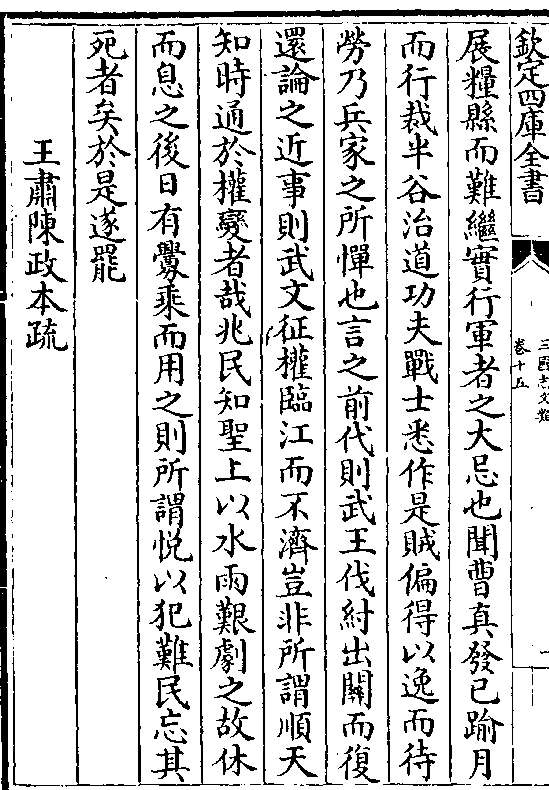 欽定四庫全書
三國志文類
卷十五
展糧縣而難繼實行軍者之大忌也聞曹真發已踰月
而行裁半谷治道功夫戰士悉作是賊偏得以逸而待
勞乃兵家之所憚也言之前代則武王伐紂出關而復
還論之近事則武文征權臨江而不濟豈非所謂順天
知時通於權變者哉兆民知聖上以水雨艱劇之故休
而息之後日有釁乘而用之則所謂悅以犯難民忘其
死者矣於是遂罷
王肅陳政本疏